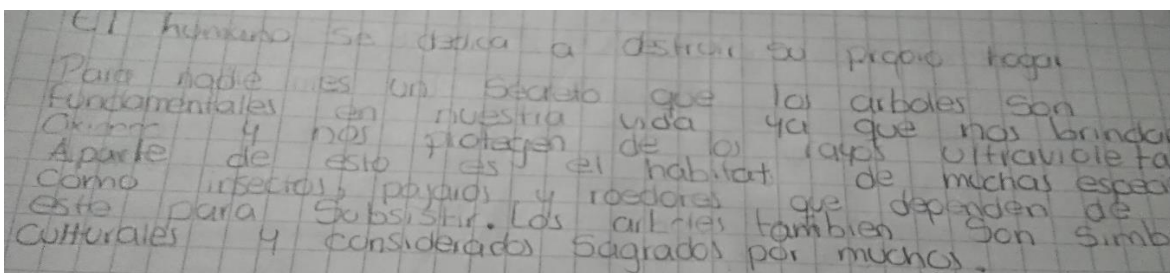 El humano se dedica a destruir su propio hogar
Para nadie es un secreto que los arboles son
fundamentales en nuestra vida ya que nos brinda
Oxigeno y nos protegen de los rayos ultravioleta
Aparte de esto es el habitat de muchas espec
como insectos, pajaros y roedores que dependen de
este para subsistir. Los arboles tambien son simb
culturales y considerados sagrados por muchos.